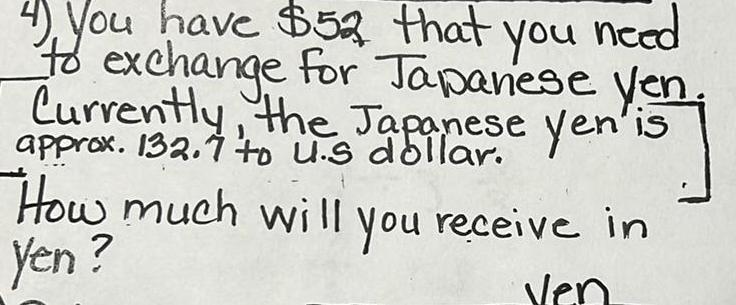 4) You have $52 that you need
to exchange for Japanese yen.
Currently, the Japanese yen is
approx. 132.7 to U.S dollar.
How much will you receive in
yen?
yen